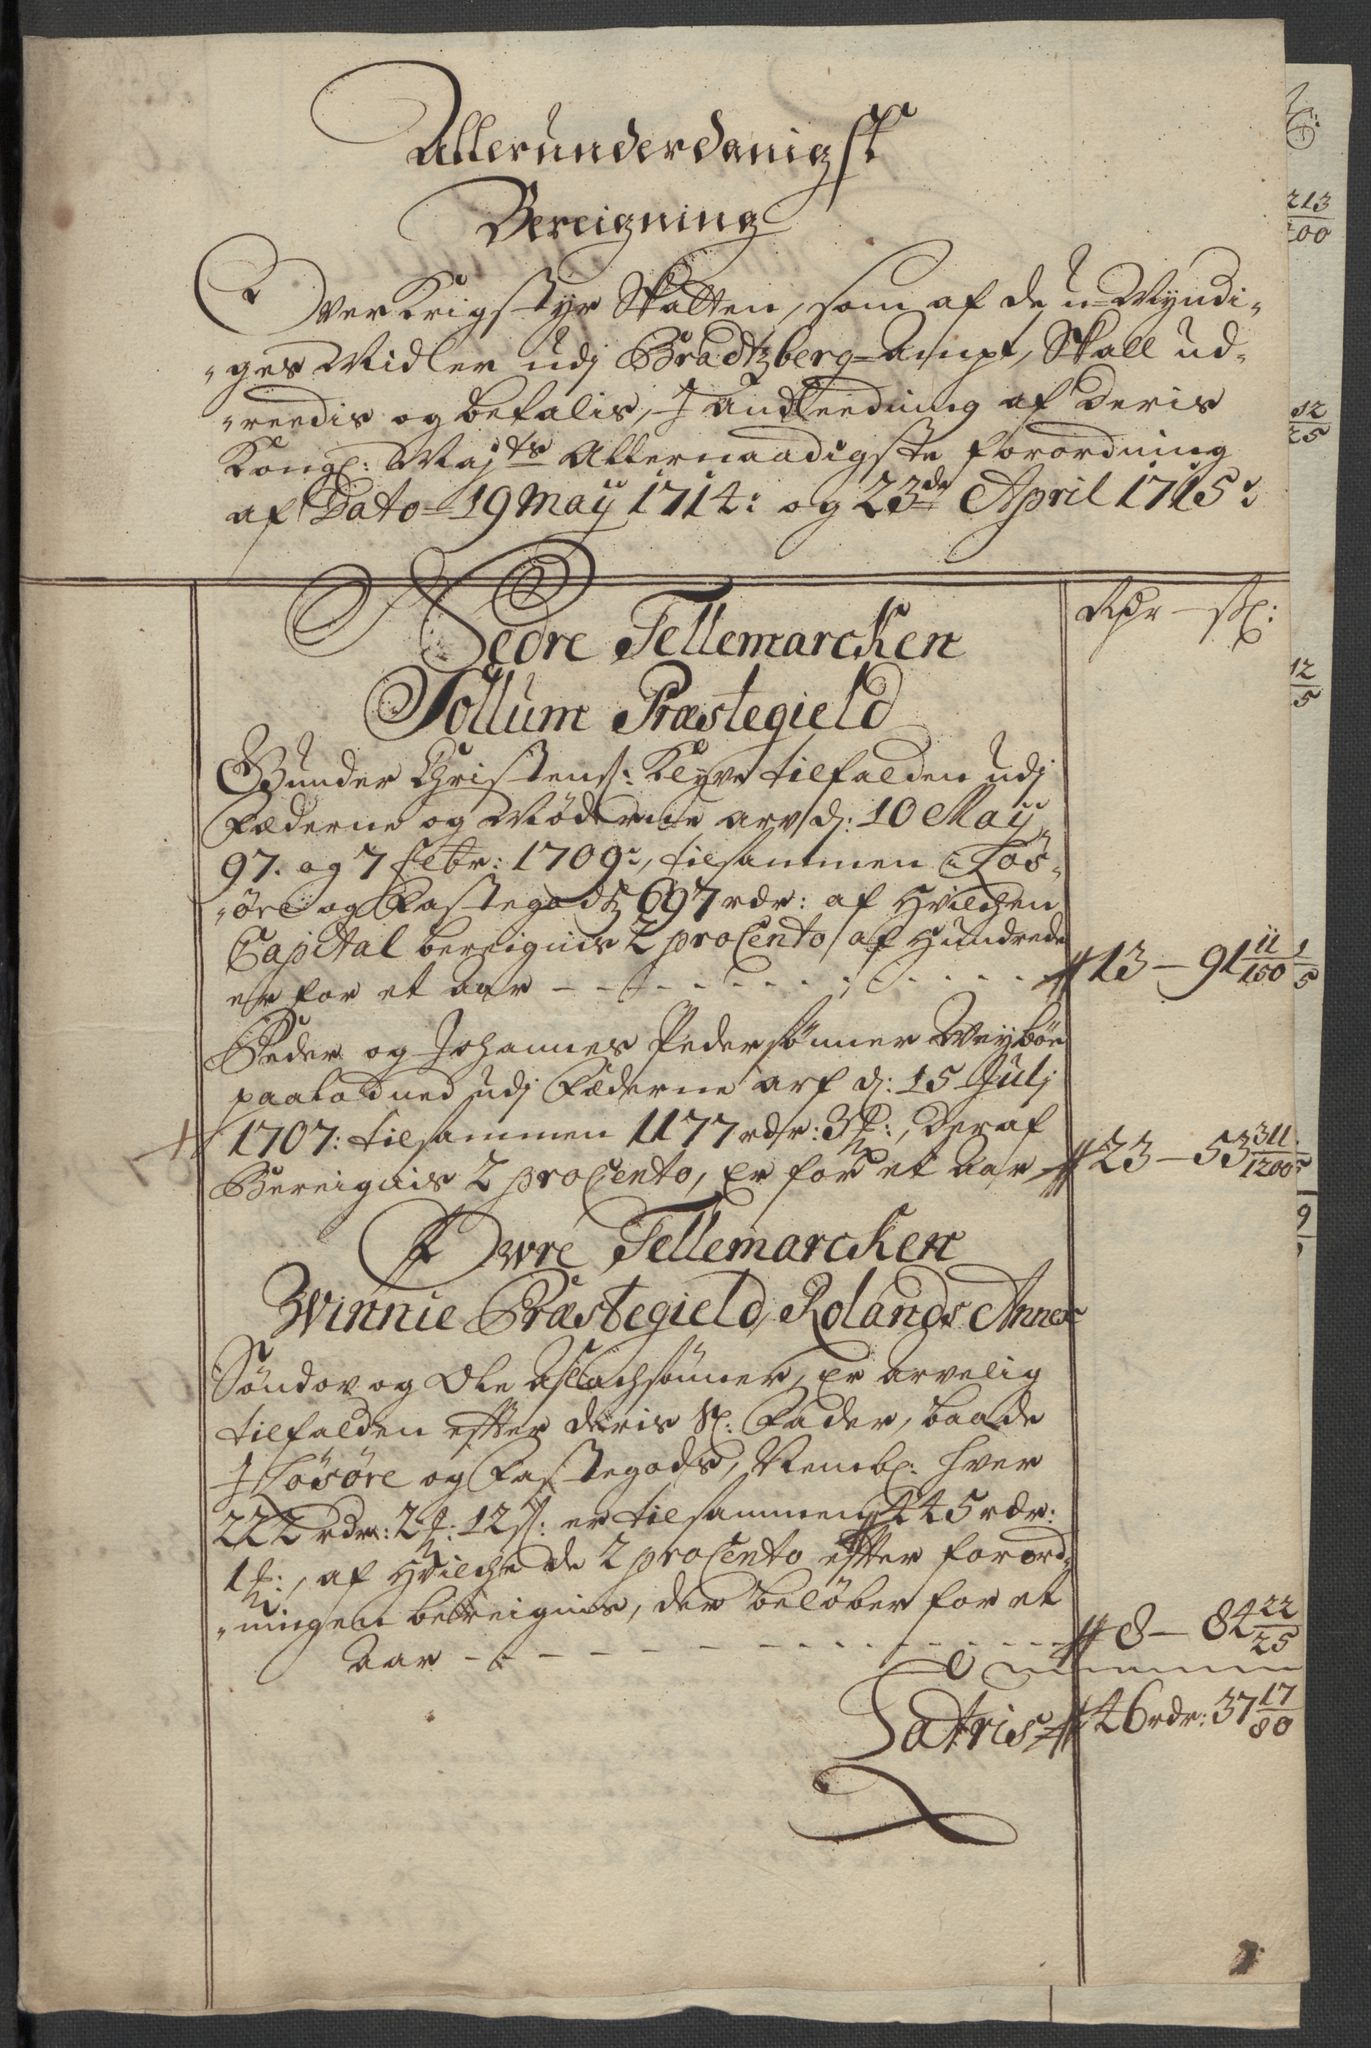 Allerunderdanigst
Bereigning
Over Krigstyr Skatten, som af de u-Myndi-
-ges Midler udj Bradtzberg-Ampt, Skall ud-
-reedis og befalis, J andleedning af Deris
Kongl: Maj.ts Allernaadigste forordning
af Dato 19 Maij 1714: og 23de April 1715:
Rdr — sk:
Nedre Tellemarcken
Sollum Præstegield
Gunder Christens: Klyve tilfalden udj
Fæderne og Møderne arv d: 10 Maij
97. og 7 febr: 1709:, tilsammen i Løs-
-øre og Fastegodtz 697 rdr: af hvilchen
Capital bereignis 2 proCento af hundrede
er for et aar - - - - - - # 13 — 91 11/150 1/5
Peder og Johannes Pedersønner Weybøe
paalodned udj Fæderne arf d: 15 Julj
1707: tilsammen 1177 rdr: 3 :, deraf
Bereignis 2 proCento, er for et aar # 23 — 53 311/1200
Øwre Tellemarcken
Winnie Præstegield, Rolands Annex
Søndov og Ole Aslachsønner, er arvelig
tilfalden efter deris Sl: Fader, baade
J Løsøre og Fastegods, Nembl: hver
222 rdr: 2 : 12 s: er tilsammen 445 rdr:
1 :, af hvilche de 2 proCento efter forord-
-ningen bereignis, der beløber for et
aar - - - - - - # 8 — 84 22/25
Latris # 46 rdr: 37 17/80
213/200
12/25
12/5